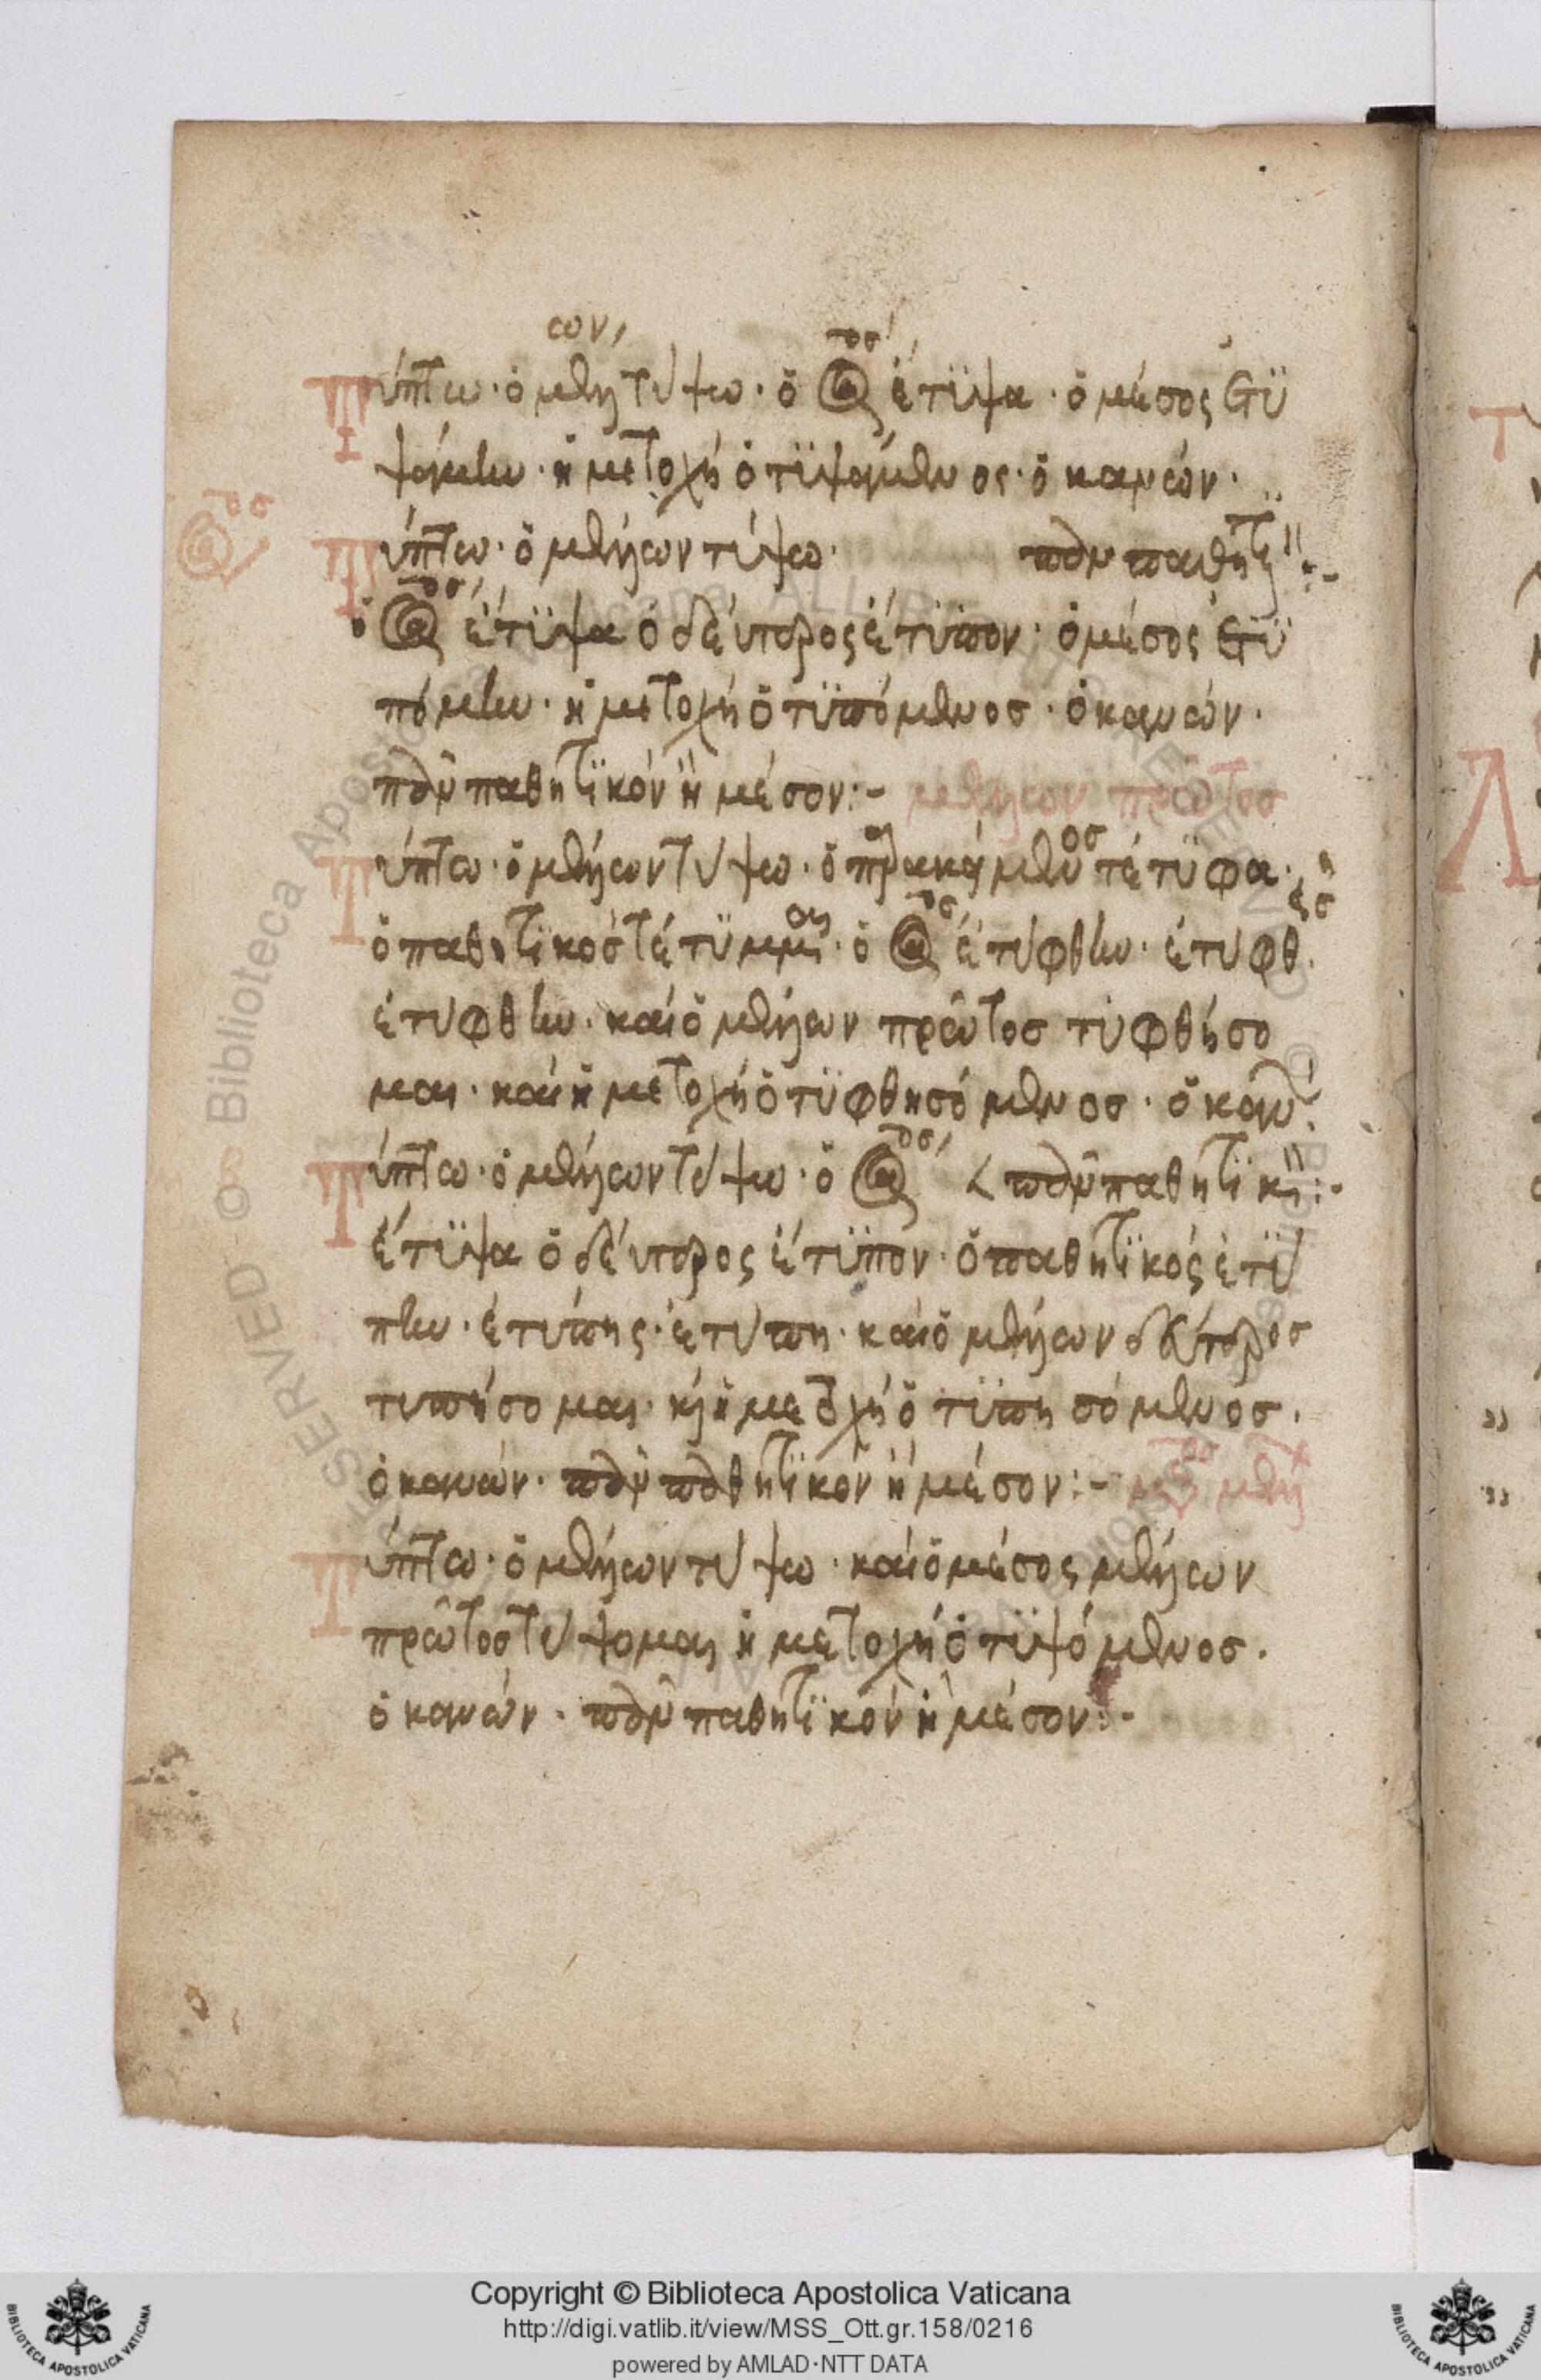 ων,
Τύπτω· ὁ μέλλ τύψω· ὁ ἀόρος, ἔτυψα· ὁ μέσος ἐτυ
ψάμην· ἡ μετοχὴ ὁ τυψάμενος· ὁ κανών·
Τύπτω· ὁ μέλλων τύψω·
ὁ ἀόρος ἔτυψα ὁ δεύτερος ἔτυπον· ὁ μέσος ἐτυ
πόμην· ἡ μετοχὴ ὁ τυπόμενοσ· ὁ κανών·
πλὴν παθητικὸν ἢ μέσον:- μέλλων πρῶτοσ
Τύπτω· ὁ μέλλων τύψω· ὁ παρακείμενοσ τέτυφα·
ὁ παθητικὸσ τέτυμμαι· ὁ ἀόροσ ἐτύφθην· ἐτύφθ
ἐτύφθην· καὶ ὁ μέλλων πρῶτοσ τυφθήσο
μαι· καὶ ἡ μετοχὴ ὁ τυφθησόμενοσ· ὁ καν
Τύπτω· ὁ μέλλων τύψω· ὁ ἀόροσ
ἔτυψα ὁ δεύτερος ἔτυπον· ὁ παθητικός ἐτύ
πην· ἐτύπης· ἐτύπη· καὶ ὁ μέλλων δεύτεροσ
τυπήσομαι· καὶ ἡ μετοχὴ ὁ τυπησόμενοσ·
ὁ κανών· πλὴν παθητικὸν ἢ μέσον:-
Τύπτω· ὁ μέλλων τύψω· καὶ ὁ μέσος μέλλων
πρῶτοσ τύψομαι ἡ μετοχὴ ὁ τυψόμενοσ·
ὁ κανών· πλὴν παθητικὸν ἢ μέσον:-
Copyright © Biblioteca Apostolica Vaticana
http://digi.vatlib.it/view/MSS_Ott.gr.158/0216
powered by AMLAD·NTT DATA
BIBLIOTECA APOSTOLICA VATICANA
BIBLIOTECA APOSTOLICA VATICANA